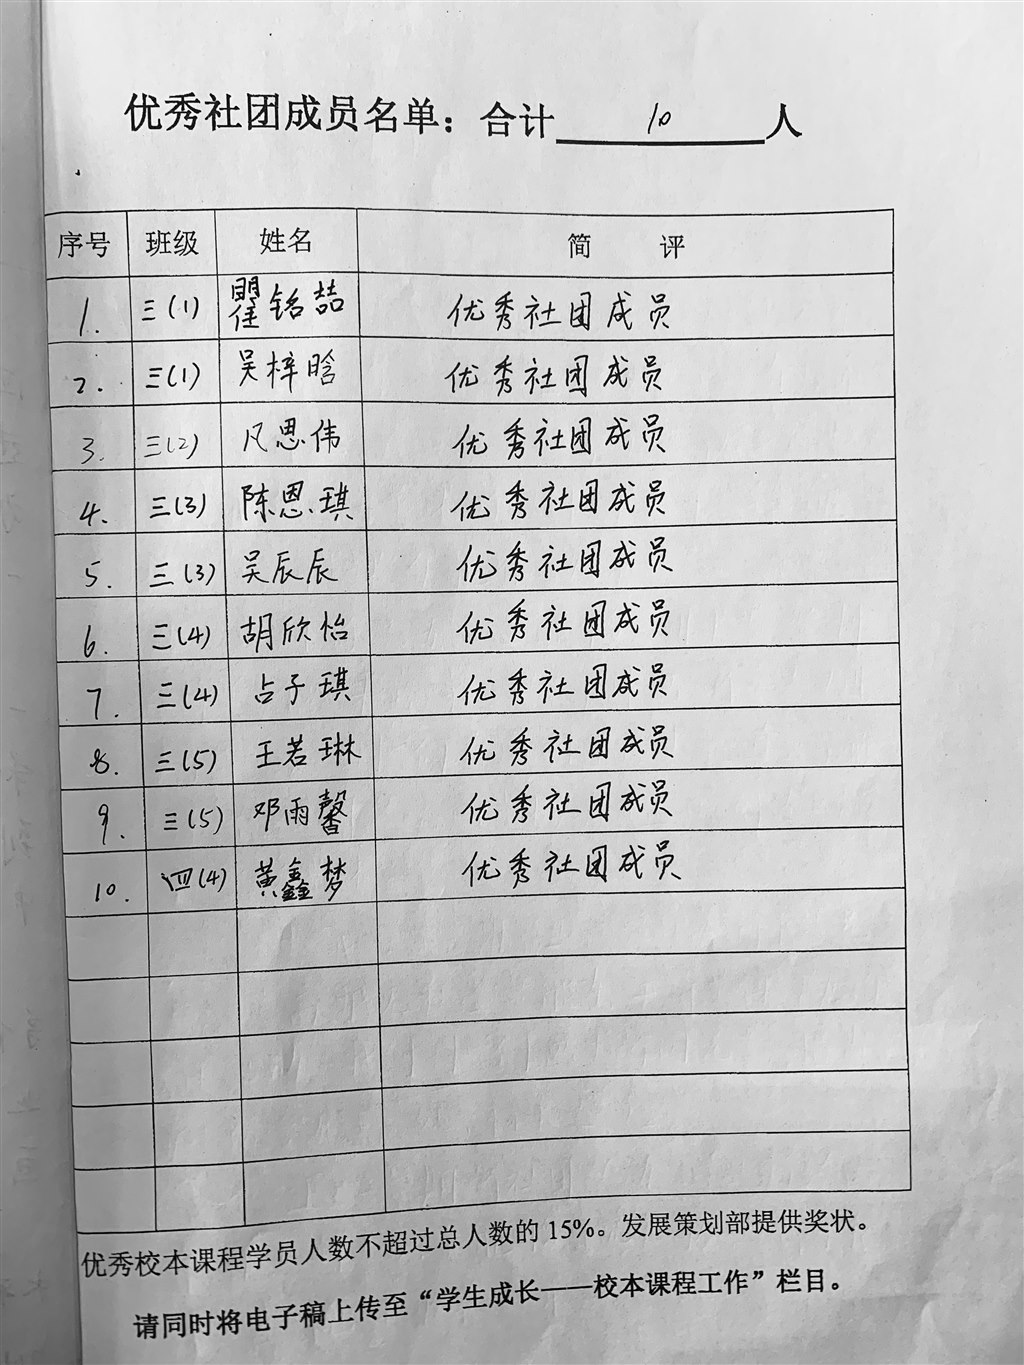 优秀社团成员名单：合计 10 人
序号 班级 姓名 简 评
1. 三(1) 瞿铭喆 优秀社团成员
2. 三(1) 吴梓晗 优秀社团成员
3. 三(2) 凡思伟 优秀社团成员
4. 三(3) 陈恩琪 优秀社团成员
5. 三(3) 吴辰辰 优秀社团成员
6. 三(4) 胡欣怡 优秀社团成员
7. 三(4) 占子琪 优秀社团成员
8. 三(5) 王若琳 优秀社团成员
9. 三(5) 邓雨馨 优秀社团成员
10. 四(4) 黄鑫梦 优秀社团成员
优秀校本课程学员人数不超过总人数的15%。发展策划部提供奖状。
请同时将电子稿上传至“学生成长——校本课程工作”栏目。